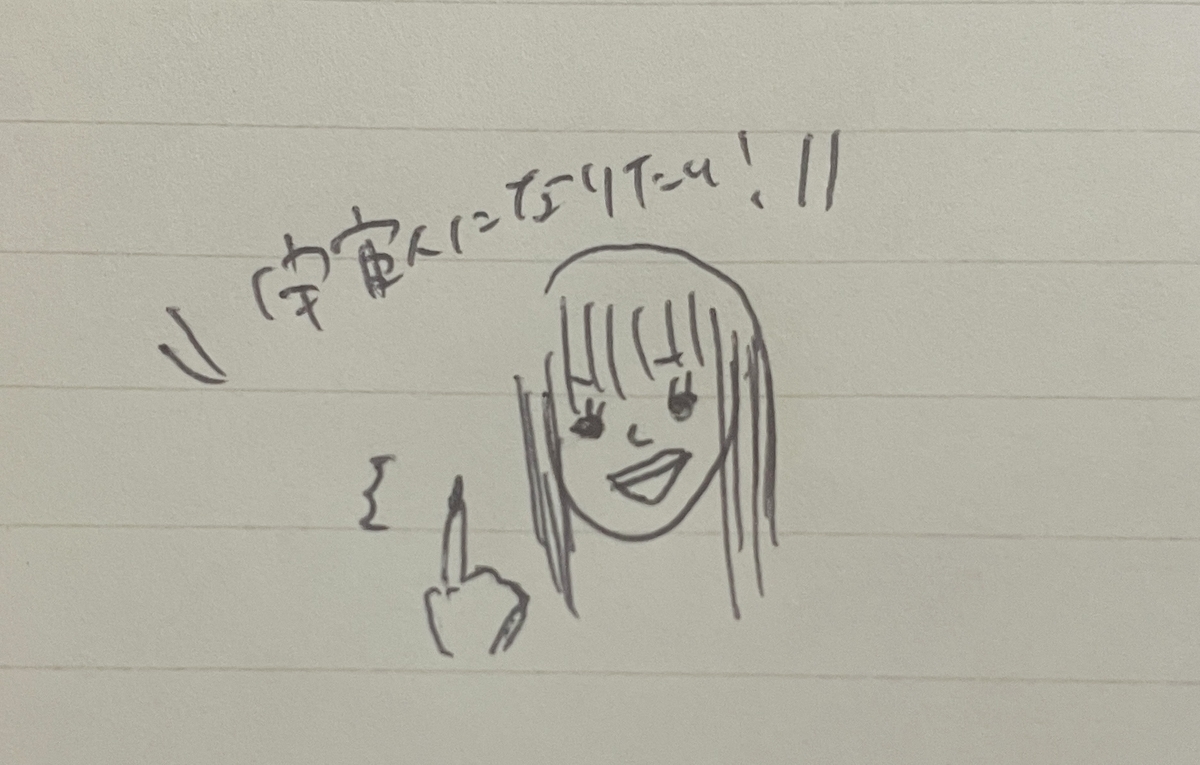 宇宙人になりたい!